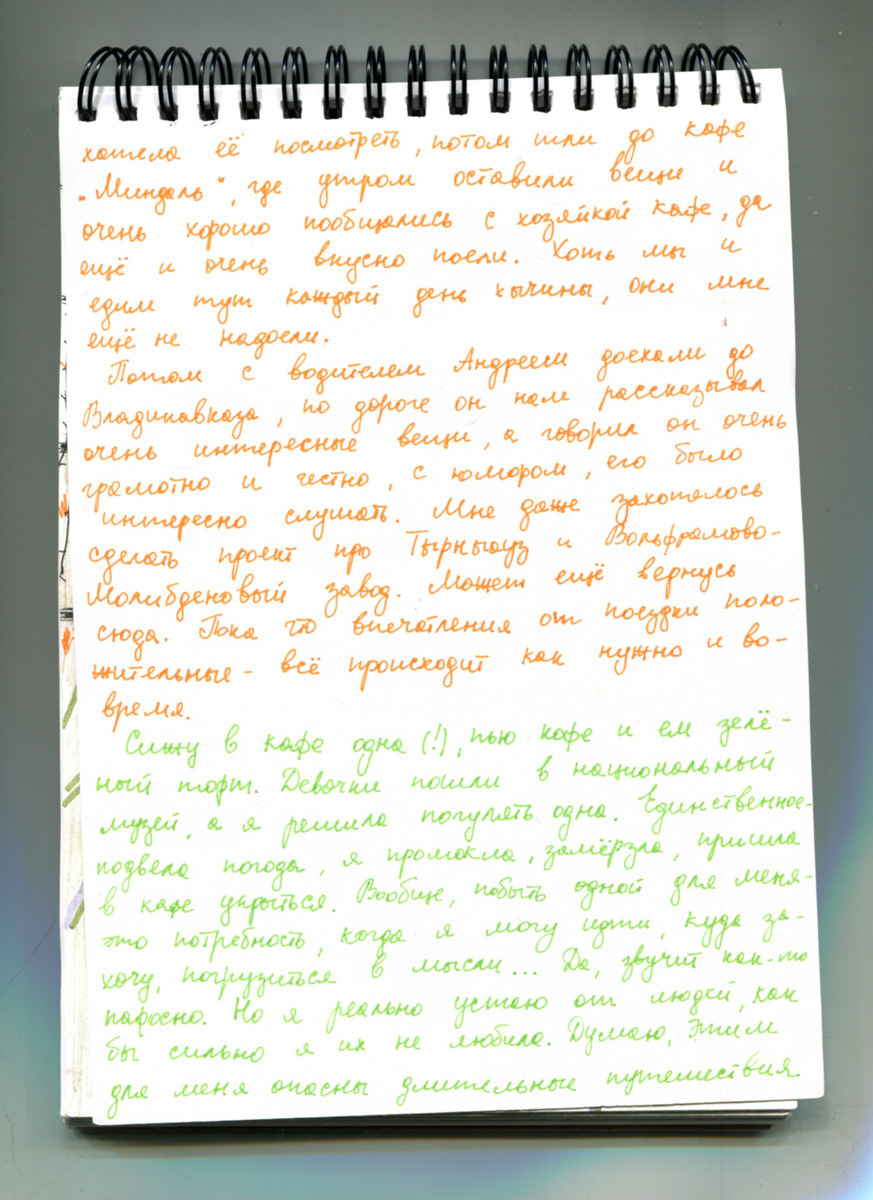 хотела её посмотреть, потом шли до кафе
„Миндаль", где утром оставили вещи и
очень хорошо пообщались с хозяйкой кафе, да
ещё и очень вкусно поели. Хоть мы и
едим тут каждый день хычины, они мне
ещё не надоели.
Потом с водителем Андреем доехали до
Владикавказа, по дороге он нам рассказывал
очень интересные вещи, а говорил он очень
грамотно и честно, с юмором, его было
интересно слушать. Мне даже захотелось
сделать проект про Тырныауз и Вольфрамово-
Молибденовый завод. Может ещё вернусь
сюда. Пока что впечатления от поездки поло-
жительные - всё происходит как нужно и во-
время.
Сижу в кафе одна (!), пью кофе и ем зелё-
ный торт. Девочки пошли в национальный
музей, а я решила погулять одна. Единственное-
подвела погода, я промокла, замёрзла, пришла
в кафе укрыться. Вообще, побыть одной для меня-
это потребность, когда я могу идти, куда за-
хочу, погрузиться в мысли... Да, звучит как-то
пафосно. Но я реально устаю от людей, как
бы сильно я их не любила. Думаю, этим
для меня опасны длительные путешествия